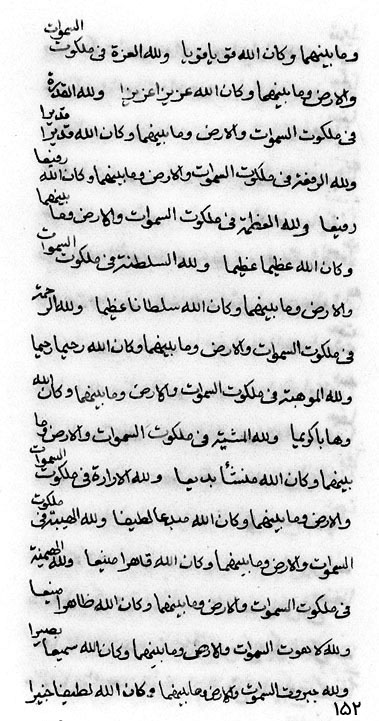 وما بينهما وكان الله قويا قويا ولله العزة في ملكوت السموات
والارض وما بينهما وكان الله عزيزا عزيزا ولله القدرة
في ملكوت السموات والارض وما بينهما وكان الله قديرا قديرا
ولله الرفعة في ملكوت السموات والارض وما بينهما وكان الله رفيعا
رفيعا ولله العظمة في ملكوت السموات والارض وما بينهما
وكان الله عظيما عظيما ولله السلطنة في ملكوت السموات
والارض وما بينهما وكان الله سلطانا عظيما ولله الرحمة
في ملكوت السموات والارض وما بينهما وكان الله رحيما رحيما
ولله الموهبة في ملكوت السموات والارض وما بينهما وكان الله
وهابا كريما ولله المشية في ملكوت السموات والارض وما
بينهما وكان الله منشئا بديعا ولله الارادة في ملكوت السموات
والارض وما بينهما وكان الله مبدعا لطيفا ولله الهيبة في ملكوت
السموات والارض وما بينهما وكان الله قاهرا منيعا ولله الهيمنة
في ملكوت السموات والارض وما بينهما وكان الله ظاهرا منيعا
ولله لاهوت السموات والارض وما بينهما وكان الله سميعا بصيرا
ولله جبروت السموات والارض وما بينهما وكان الله لطيفا خبيرا
١٥٢